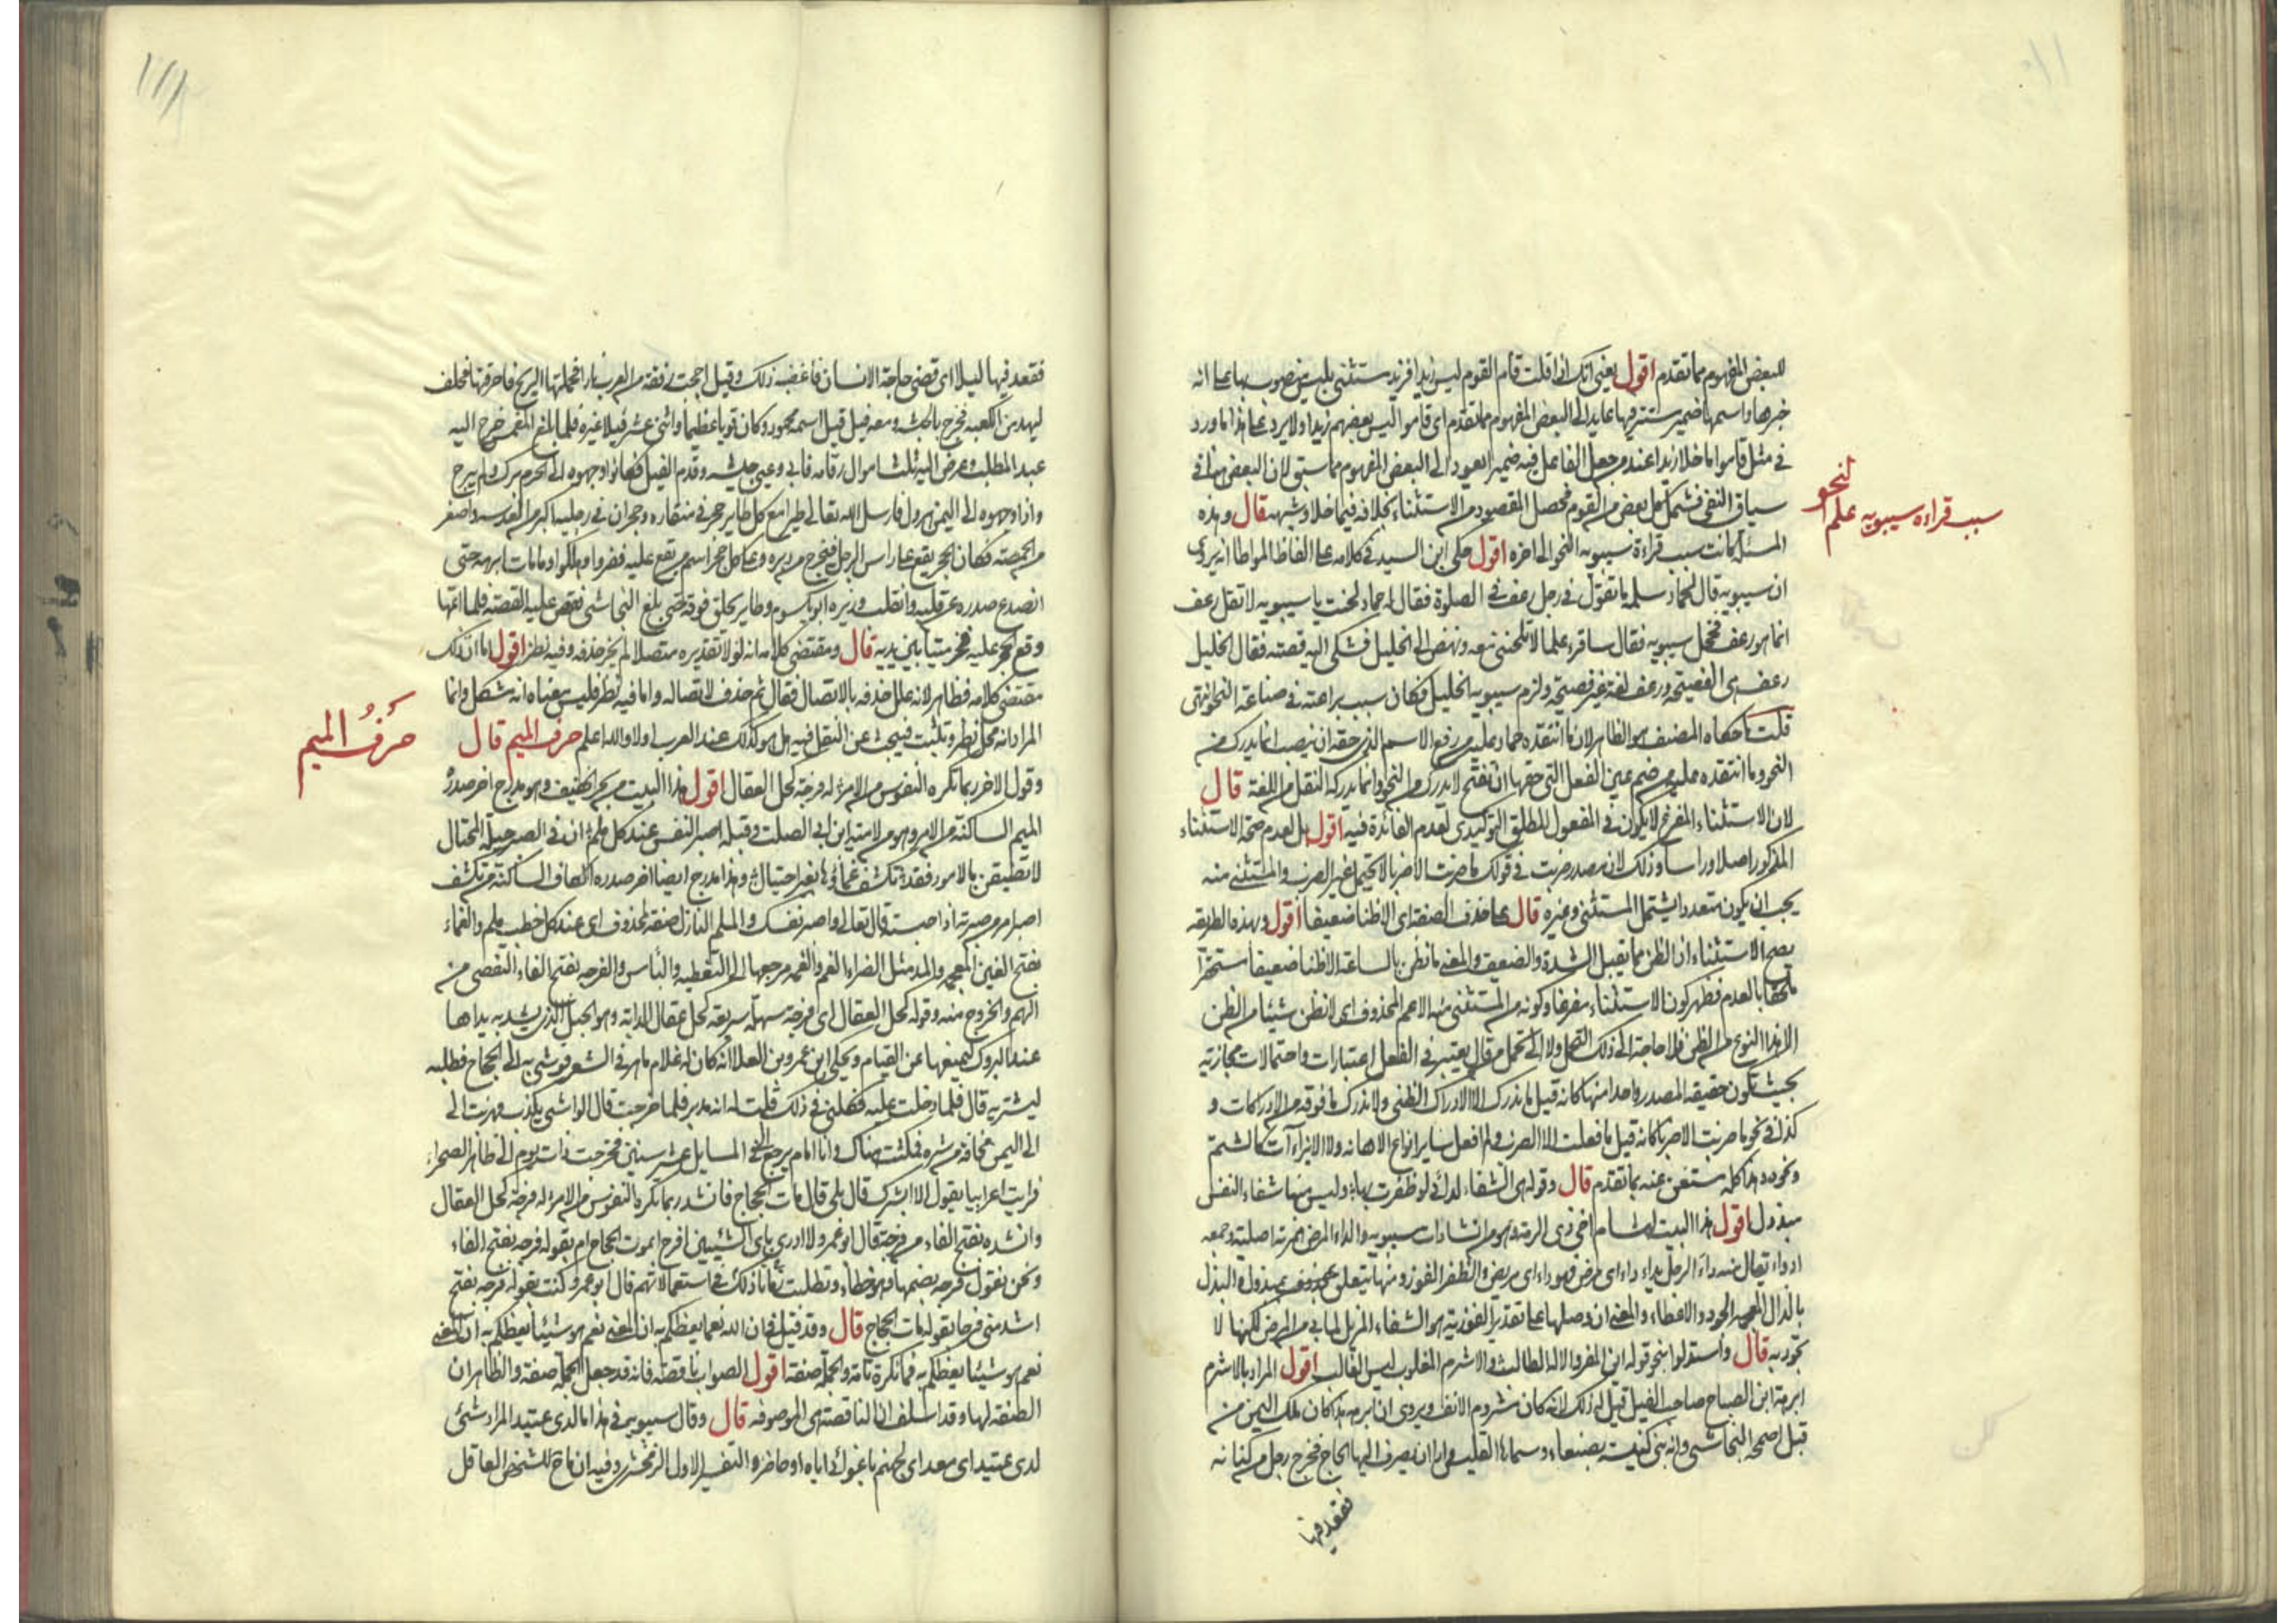 للبعض المفهوم مما تقدم اقول يعني انك اذا قلت قام القوم ليس زيدا فزيد مستثنى بليس منصوب بها على انه
خبرها واسمها ضمير مستتر فيها عايد الى البعض المفهوم مما تقدم اى قاموا ليس بعضهم زيدا ولا يرد على هذا ما ورد
في مثل قاموا ما خلا زيدا عند من جعل الفاعل فيه ضميرا يعود الى البعض المفهوم مما سبق لان البعض هنا في
سياق النفى فشمل كل بعض من القوم فحصل المقصود من الاستثناء بخلافه فيما خلا وشبهه قال وهذه
سبب قراءه سيبويه علم النحو
المسئلة كانت سبب قراءة سيبويه النحو الى اخره اقول حكى ابن السيد في كلامه على الفاظ الموطا انه يروى
ان سيبويه قال لحماد بن سلمه ما تقول في رجل رعف في الصلوة فقال له حماد لحنت يا سيبويه لا تقل رعف
انما هو رعف فخجل سيبويه فقال ساقرء علما لا تلحنني معه ونهض الى الخليل فشكى اليه قصته فقال الخليل
رعف هى الفصيحة ورعف لغة غير فصيحة ولزم سيبويه الخليل فكان سبب براعته في صناعة النحو انتهى
قلت ما حكاه المصنف هو الظاهر لان ما انتقده حماد عليه من رفع الاسم الذى حقه ان ينصب انما يدرك من
النحو وما انتقده عليه من ضم عين الفعل التى حقها ان تفتح لا يدرك من النحو وانما يدركه النقل من اللغة قال
لان الاستثناء المفرغ لا يكون في المفعول المطلق التوكيدى لعدم الفائدة فيه اقول بل لعدم صحة الاستثناء
المذكور اصلا وراسا وذلك لان مصدر ضربت في قولك ما ضربت الا ضربا لا يحتمل غير الضرب والمستثنى منه
يجب ان يكون متعددا يشتمل المستثنى وغيره قال على حذف الصفة اى الا ظنا ضعيفا اقول وبهذه الطريقه
يصح الاستثناء اذ الظن مما يقبل الشدة والضعف والمعنى ما نظن بالساعة الا ظنا ضعيفا مستحقرا
ملحقا بالعدم فظهر كون الاستثناء مفرغا وكونه من المستثنى منه الاعم المحذوف اى لا نظن شيئا من الظن
الا هذا النوع من الظن فلا حاجة الى ذلك ولا الى تحمل من قال يعتبر في الفعل اعتبارات واحتمالات مجازية
بحيث تكون حقيقة المصدر واحدا منها كانه قيل ما ندرك الا الادراك الظنى ولا ندرك ما فوقه من الادراكات و
كذا في نحو ما ضربت الا ضربا كانه قيل ما فعلت الا الضرب ولم افعل ساير انواع الاهانه ولا الايذاءات كالشتم
ونحوه وهذا كله مستغن عنه بما تقدم قال وقوله هى الشفاء لدائى لو ظفرت بها وليس منها شفاء النفس
مبذول اقول هذا البيت لهشام اخى ذى الرمة وهو من انشادات سيبويه والداء المرض همزته اصلية وجمعه
ادواء يقال منه داء الرجل يداء داء اى مرض فهو داء اى مريض والظفر الفوز ومنها يتعلق بمحذوف مبذول والبذل
بالذال المعجمه الجود والاعطاء والمعنى ان وصلها على تقدير الفوز به هو الشفاء المزيل لما بى من المرض لكنها لا
تجود به قال واستدلوا بنحو قوله اين المفر والاله الطالب والاشرم المغلوب ليس الغالب اقول المراد بالاشرم
ابرهة ابن الصباح صاحب الفيل قيل له ذلك لانه كان مشروم الانف ويروى ان ابرهه هذا كان ملك اليمن من
قبل اصحمة النجاشى وانه بنى كنيسة بصنعاء وسماها القليس واراد ان يصرف اليها الحاج فخرج رجل من كنانه
فقعد فيها
١١١
فقعد فيها ليلا اى قضى حاجة الانسان فاغضبه ذلك وقيل اججت رفقة من العرب نارا فحملتها الريح فاحرقتها فحلف
ليهدمن الكعبه فخرج بالحبشه ومعه فيل قيل اسمه محمود وكان قويا عظيما واثنى عشر فيلا غيره فلما بلغ المغمس خرج اليه
عبد المطلب وعرض اليه ثلث اموال تهامه فابى وعبى جيشه وقدم الفيل فكانوا اذا وجهوه الى الحرم برك ولم يبرح
واذا وجهوه الى اليمن هرول فارسل الله تعالى طيرا مع كل طاير حجر في منقاره وحجران في رجليه اكبر من العدسه واصغر
من الحمصه فكان الحجر يقع على راس الرجل فيخرج من دبره وعلى كل حجر اسم من يقع عليه ففروا وهلكوا وما مات ابرهه حتى
انصدع صدره عن قلبه وانفلت وزيره ابو يكسوم وطاير يحلق فوقه حتى بلغ النجاشى فقص عليه القصة فلما اتمها
وقع الحجر عليه فخر ميتا بين يديه قال ومقتضى كلامه انه لولا تقديره متصلا لم يجز حذفه وفيه نظر اقول اما ان ذلك
مقتضى كلامه فظاهر لانه علل حذفه بالاتصال فقال ثم حذف لاتصاله واما فيه نظر فليس معناه انه مشكل وانما
المراد انه محل نظر وتثبت فيبحث عن النقل فيه هل هو كذلك عند العرب اولا والله اعلم حرف الميم قال
حَرْفُ الميم
وقول الاخر ربما تكره النفوس من الامر له فرجة كحل العقال اقول هذا البيت من بحر الخفيف وهو مدرج اخر صدره
الميم الساكنة من الامر وهو لامية ابن ابى الصلت وقبله اصبر النفس عند كل ملم ان في الصبر حيلة المحتال
لا تضيقن بالامور فقد تكشف غماؤها بغير احتيال وهذا مدرج ايضا اخر صدره الكاف الساكنة من تكشف
اصبر من صبرته اذا حبسته قال تعالى واصبر نفسك والملم النازل صفة لمحذوف اى عند كل خطب ملم والغماء
بفتح الغين المعجمه والمد مثل الضراء الغم والغمه مرجعها الى التغطيه والبأس والفرجه بفتح الفاء التفصى من
الهم والخروج منه وقوله كحل العقال اى فرجة سهلة سريعة كحل عقال الدابة وهو الحبل الذى يشد به يداها
عند البروك ليمنعها عن القيام وحكى ابو عمرو بن العلا انه كان له غلام ماهر في الشعر فوشى به الى الحجاج فطلبه
ليشتريه قال فلما دخلت عليه فكلمنى في ذلك قلت له انه مدبر فلما خرجت قال الواشى يكذب فهربت الى
الى اليمن مخافة من شره فمكثت هناك وانا امام يرجع الى في المسايل عشر سنين فخرجت ذات يوم الى ظاهر الصحراء
فرايت اعرابيا يقول الا ابشرك قال بلى قال مات الحجاج فانشد ربما تكره النفوس من الامر له فرجة كحل العقال
وانشده بفتح الفاء من فرجة قال ابو عمرو ولا ادرى باى الشيئين افرح ابموت الحجاج ام بقوله فرجه بفتح الفاء
ونحن نقول فرجه بضمها وهو خطاء وتطلبت زمانا ذلك في استعمالاتهم قال ابو عمرو وكنت بقوله فرجه بفتح
اشد منى فرحا بقوله مات الحجاج قال وقد قيل في ان الله نعما يعظكم به ان المعنى نعم هو شيئا يعظكم به ان المعنى
نعم هو شيئا يعظكم به فما نكرة تامة والجملة صفة اقول الصواب ناقصة فانه قد جعل الجملة صفة والظاهر ان
الصفه لها وقد اسلف ان الناقصة هى الموصوفه قال وقال سيبويه في هذا ما لدى عتيد المراد شئ
لدى عتيد اى معد اى لجهنم باغوائى اياه او حاضر والتفسير الاول للزمخشرى وفيه ان ما ح للشخص العاقل